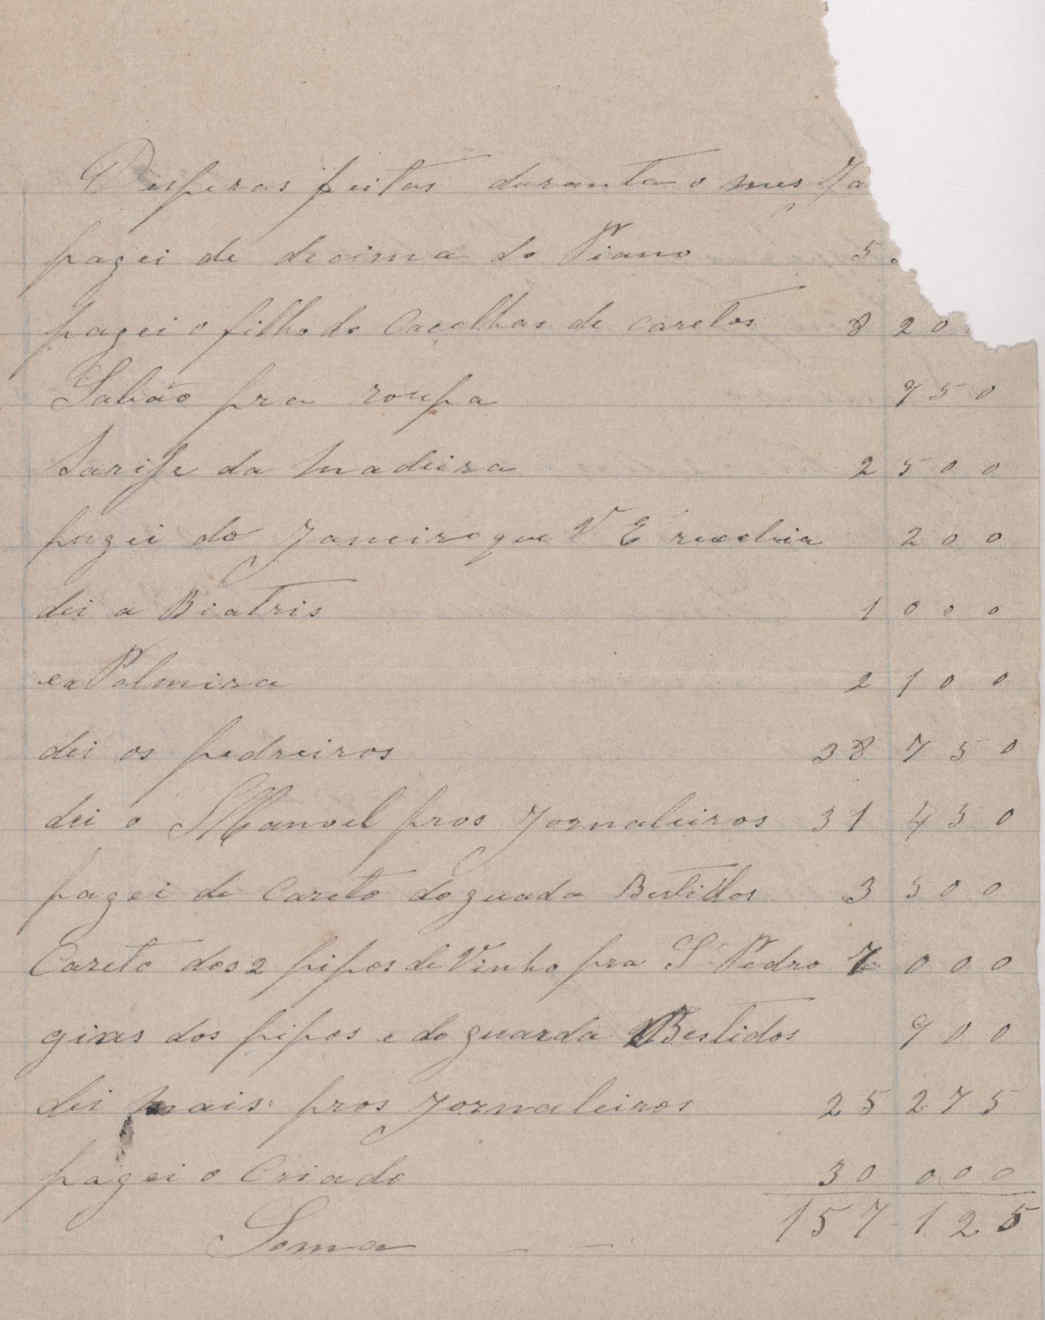 Despezas feitas durante o mes Ja
pagei de decima do Piano 5
pagei o filho do Cacelhas de caretos 8 20
Sabão pra roupa 950
tarife da madeira 2 500
pagei do Janeiro que V E recebia 200
dei a Biatris 1 000
e a Palmira 2 100
dei os pedreiros 38 750
dei o Manoel pros Jornaleiros 31 450
pagei de Careto do guarda Bestidos 3 500
Careto dos 2 pipos de Vinho pra S Pedro 7 000
giras dos pipos e do guarda Bestidos 900
dei mais pros Jornaleiros 25 275
pagei o Criado 30 000
Soma 157 125